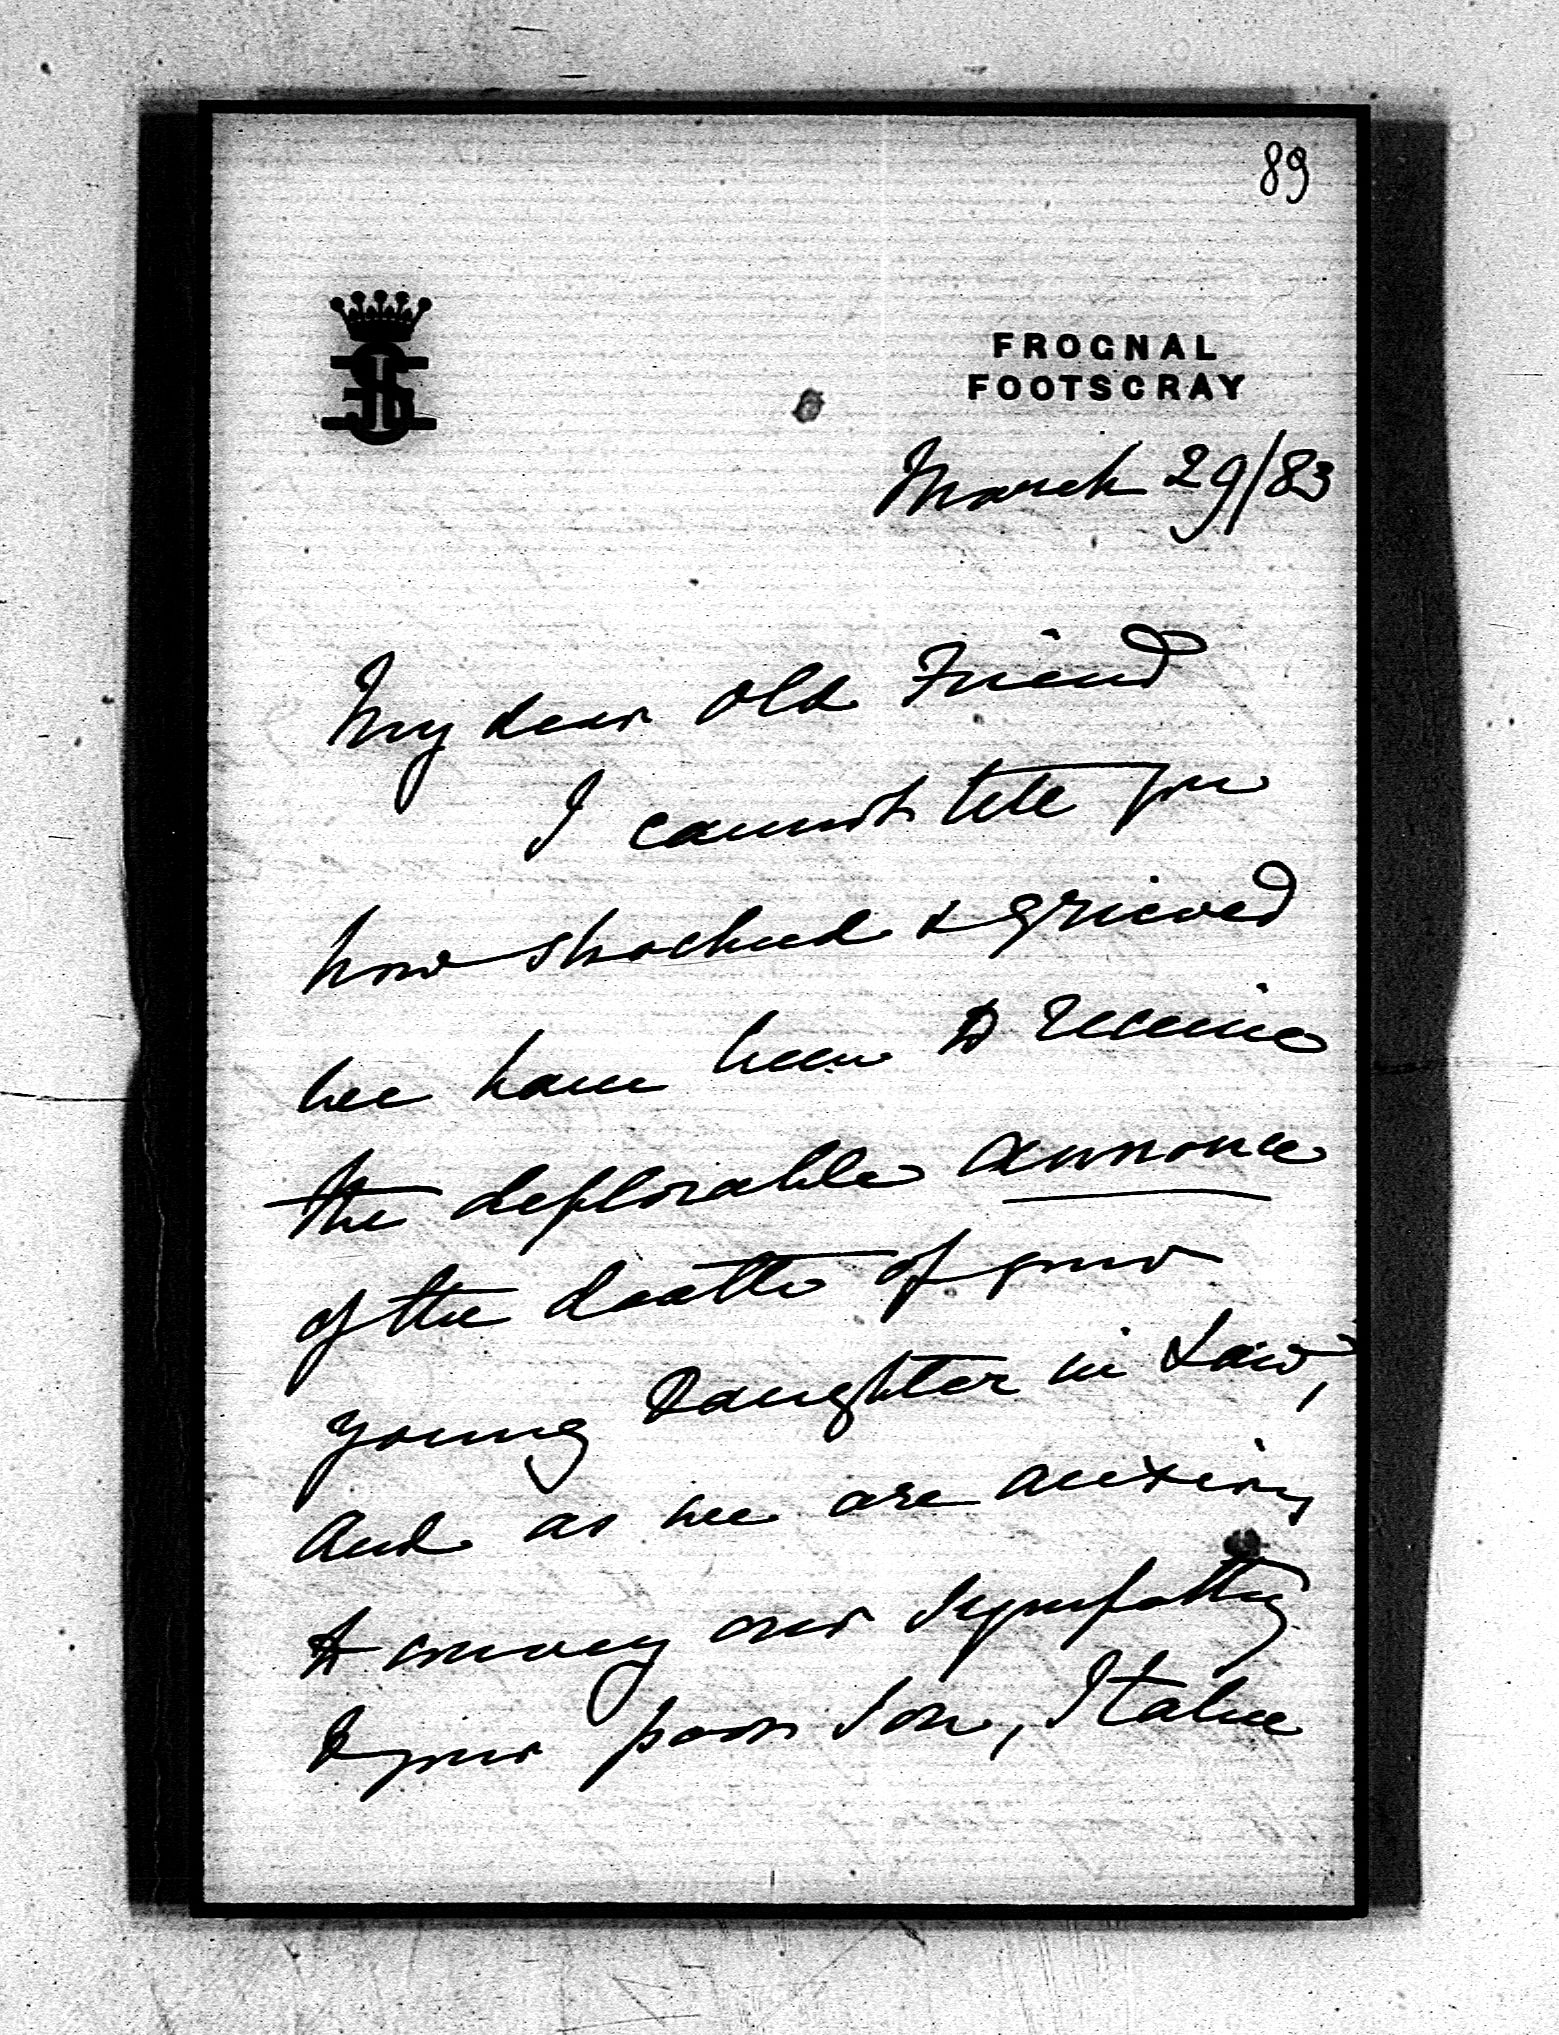 89
FROGNAL
FOOTSCRAY
March 29/83
My dear old Friend
I cannot tell you
how shocked & grieved
we have been to receive
the deplorable annonce
of the death of your
young Daughter in Law,
and as we are anxious
to convey our sympathy
to your poor Son, I take